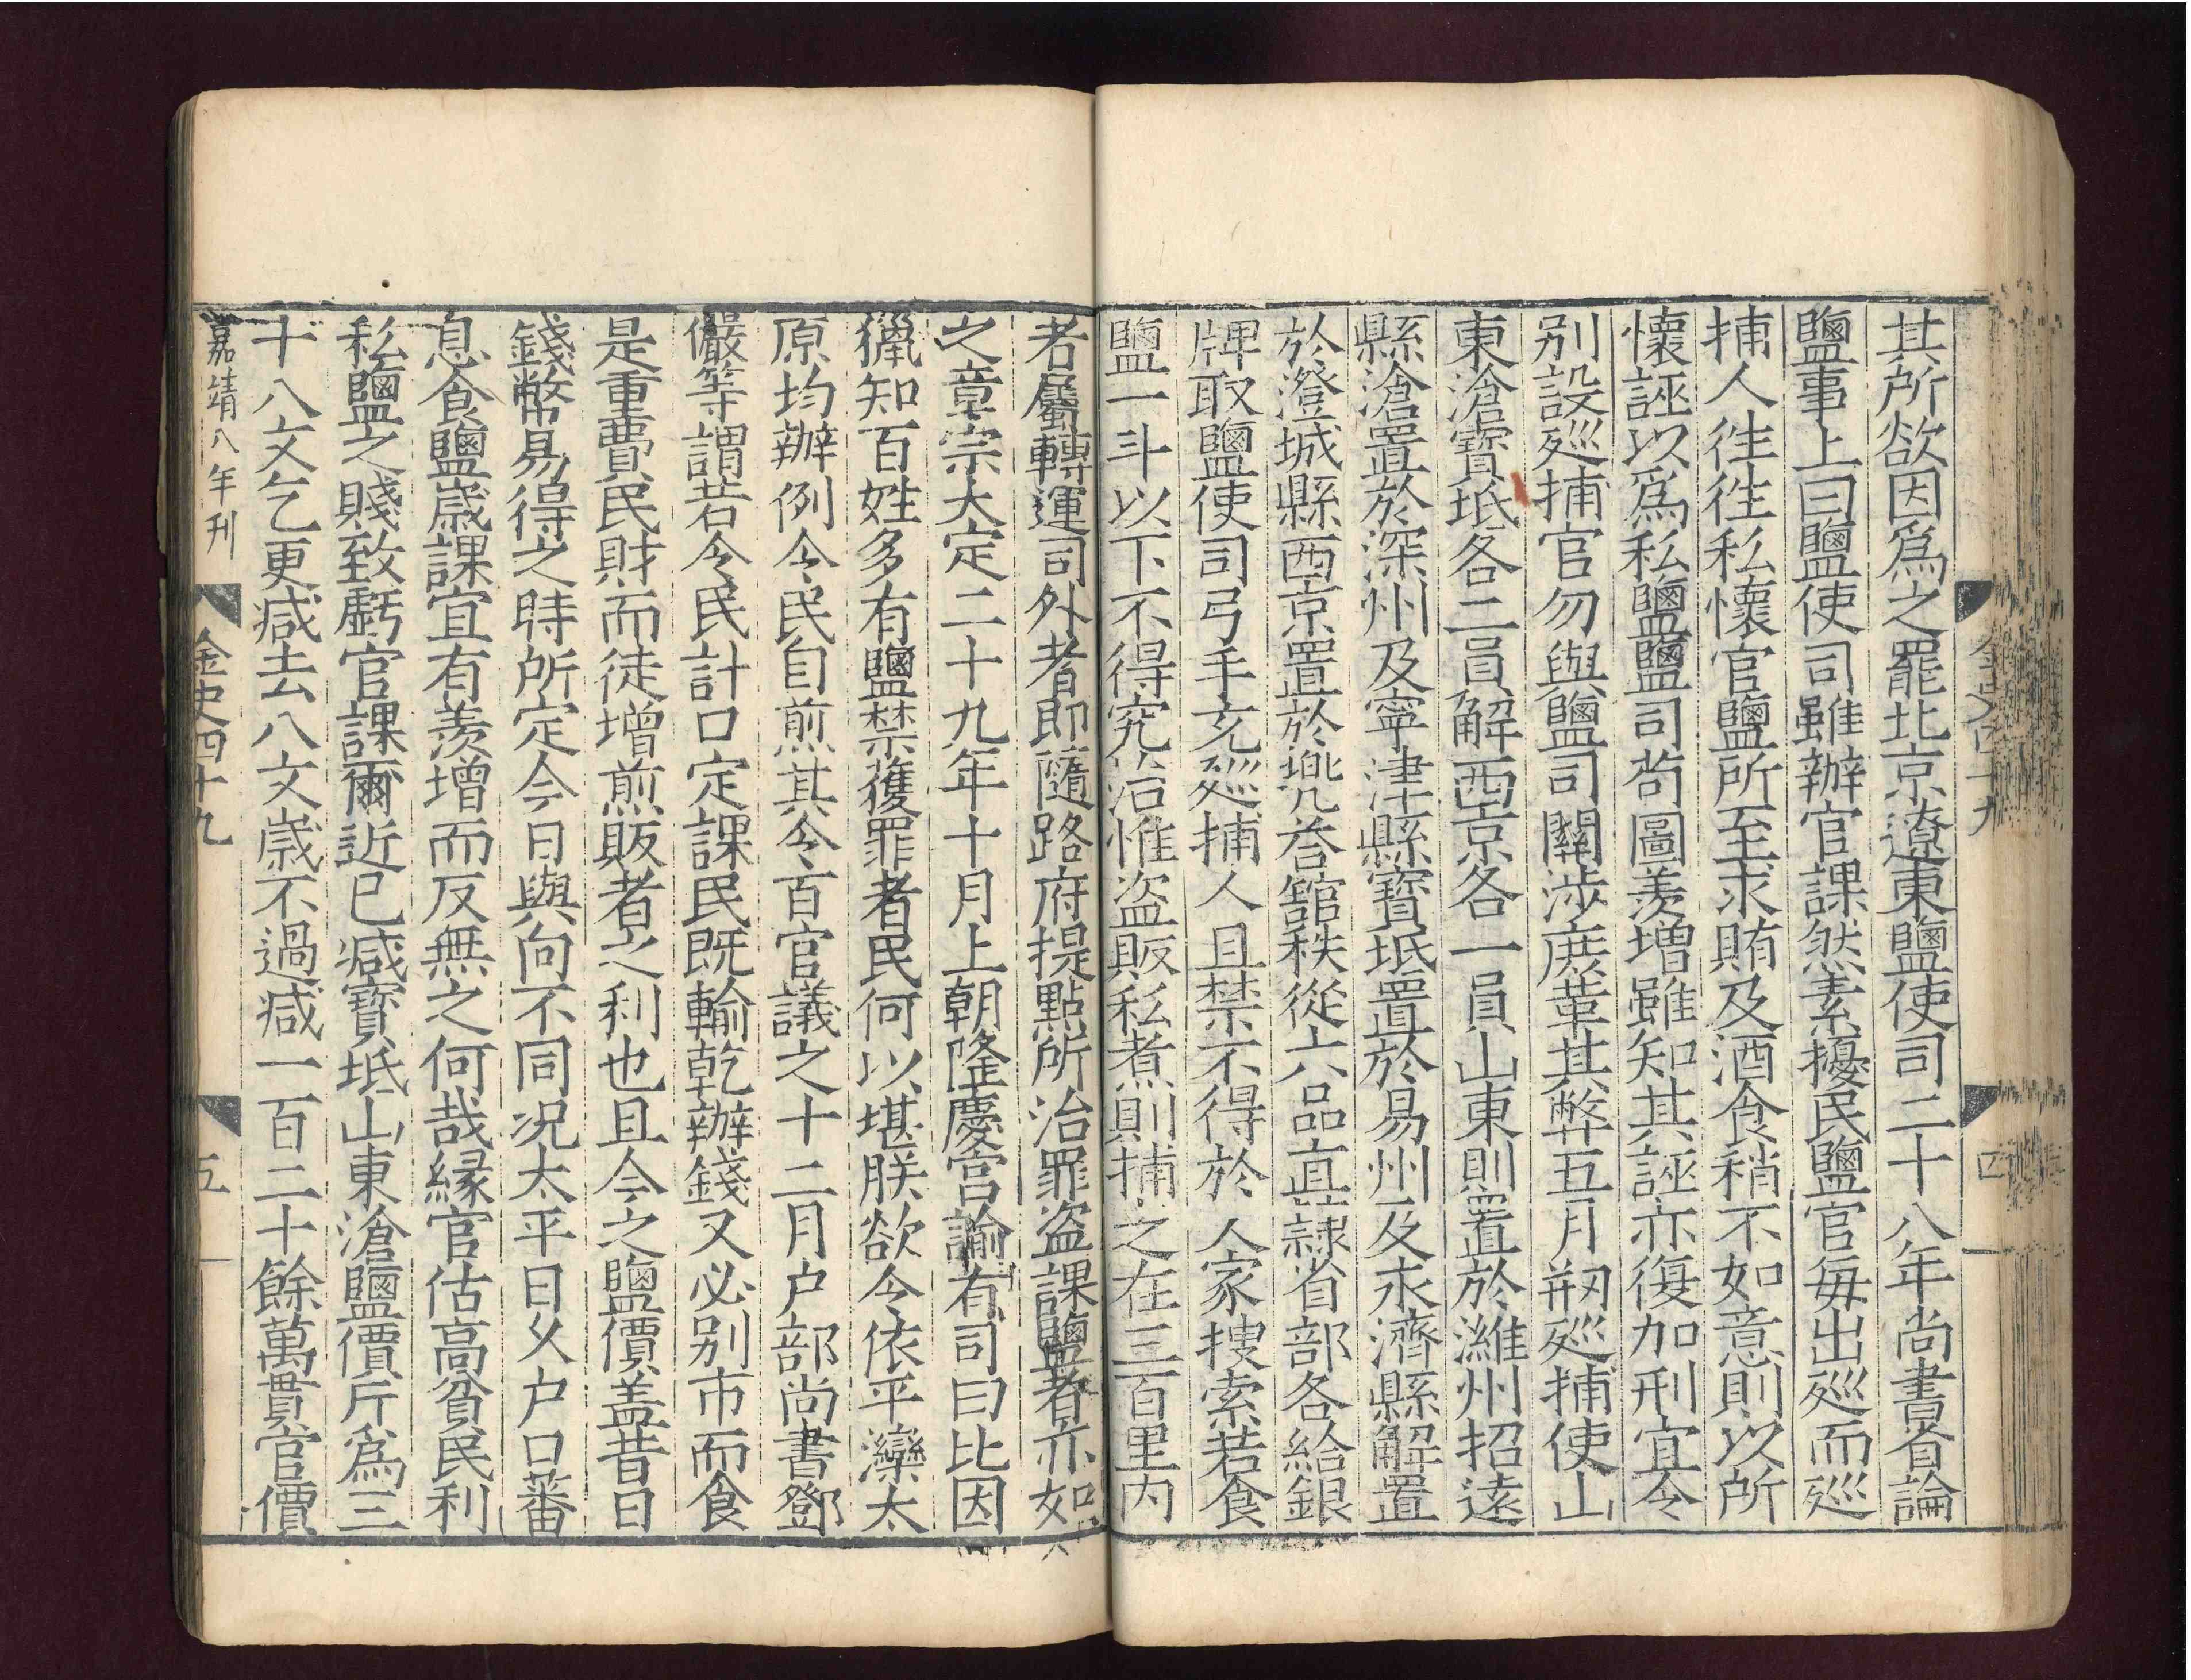 其所欲因爲之罷北京遼東鹽使司二十八年尚書省論
鹽事上曰鹽使司雖辦官課然素擾民鹽官每出廵而廵
捕人徃徃私懷官鹽所至求賄及酒食稍不如意則以所
懷誣以爲私鹽鹽司茍圖羨增雖知其誣亦復加刑宜令
别設廵捕官勿與鹽司關涉庶革其弊五月剏廵捕使山
東滄寶坻各二員解西京各一員山東則置於濰州招逺
縣滄置於深州及寧津縣寶坻置於易州及永濟縣解置
於澄城縣西京置於兠答舘秩從六品直隷省部各給銀
牌取鹽使司弓手充廵捕人且禁不得於人家搜索若食
鹽一斗以下不得究治惟盗販私煮則捕之在三百里内
者屬轉運司外者即隨路府提點所治罪盗課鹽者亦如
之章宗大定二十九年十月上朝隆慶宫諭有司曰比因
獵知百姓多有鹽禁獲罪者民何以堪朕欲令依平灤太
原均辦例令民自煎其令百官議之十二月户部尚書鄧
儼等謂若令民計口定課民既輸乾辦錢又必别市而食
是重費民財而徒增煎販者之利也且今之鹽價盖昔日
錢幣易得之時所定今日與向不同況太平日乆户口蕃
息食鹽歳課宜有羨增而反無之何哉縁官估高貧民利
私鹽之賤致虧官課爾近已減寶坻山東滄鹽價斤爲三
十八文乞更減去八文歳不過減一百二十餘萬貫官價
嘉靖八年刊
金史四十九
五
金史四十九
四